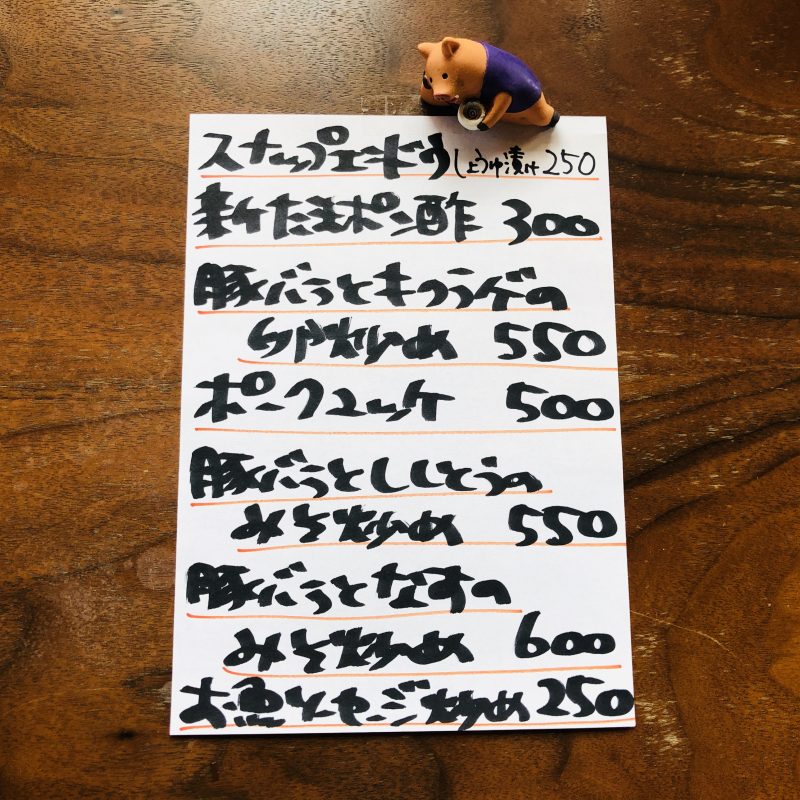 スナップエンドウしょうゆ漬け250
新たまポン酢 300
豚バラとキクラゲの
卵炒め 550
ポークコロッケ 500
豚バラとししとうの
みそ炒め 550
豚バラとなすの
みそ炒め 600
お魚ソーセージ炒め250